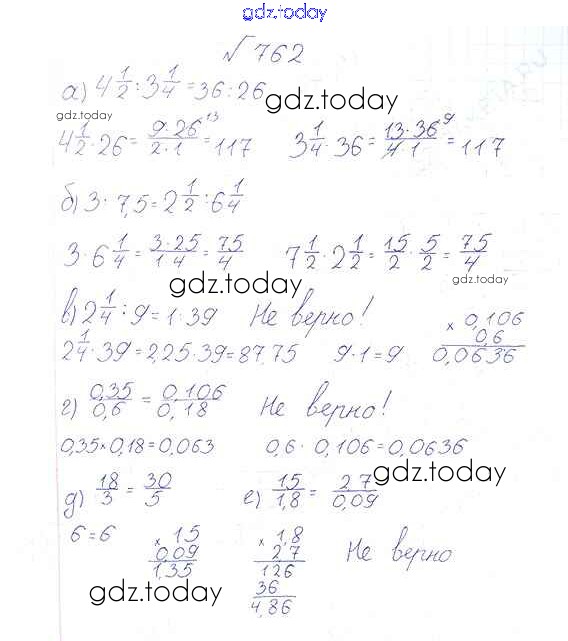 gdz.today
№762
а) 4 1/2 : 3 1/4 = 36 : 26
gdz.today
gdz.today
4 1/2 · 26 = 9·26 13/2·1 = 117 3 1/4 · 36 = 13·36 9/4·1 = 117
б) 3 · 7,5 = 2 1/2 : 6 1/4
3 · 6 1/4 = 3·25/1·4 = 75/4 7 1/2 · 2 1/2 = 15/2 · 5/2 = 75/4
gdz.today
gdz.today
в) 2 1/4 : 9 = 1 · 39 Не верно!
2 1/4 · 39 = 2,25 · 39 = 87,75 9 · 1 = 9
× 0,106
0,6
0,0636
г) 0,35/0,6 = 0,106/0,18 Не верно!
0,35 × 0,18 = 0,063 0,6 · 0,106 = 0,0636
gdz.today
д) 18/3 = 30/5 е) 15/1,8 = 27/0,09
6 = 6
× 15
0,09
1,35
× 1,8
2,7
126
36
4,86
Не верно
gdz.today